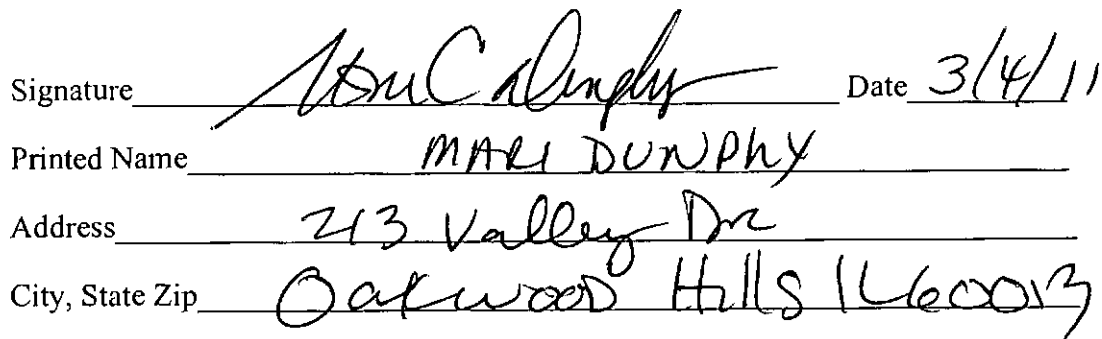 Signature Date 3/4/11
Printed Name MARI DUNPHY
Address 213 Valley Dr
City, State Zip Oakwood Hills IL 60013